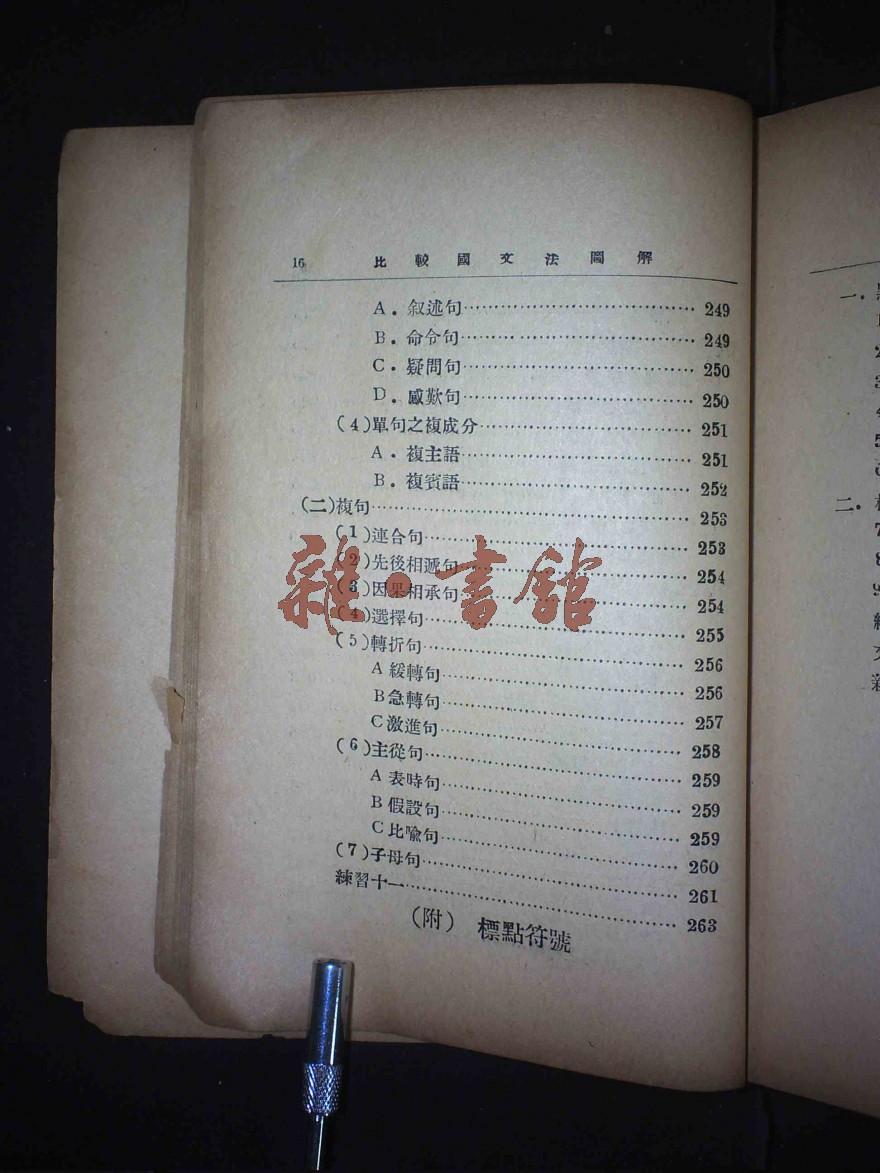 16 比較國文法圖解
A. 叙述句 249
B. 命令句 249
C. 疑問句 250
D. 感歎句 250
(4)單句之複成分 251
A. 複主語 251
B. 複賓語 252
(二)複句 253
(1)連合句 253
(2)先後相遞句 254
(3)因果相承句 254
(4)選擇句 255
(5)轉折句 256
A 緩轉句 256
B 急轉句 257
C 激進句 258
(6)主從句 259
A 表時句 259
B 假設句 259
C 比喩句 260
(7)子母句 261
練習十一 263
(附) 標點符號
雜·書館
一.
二.